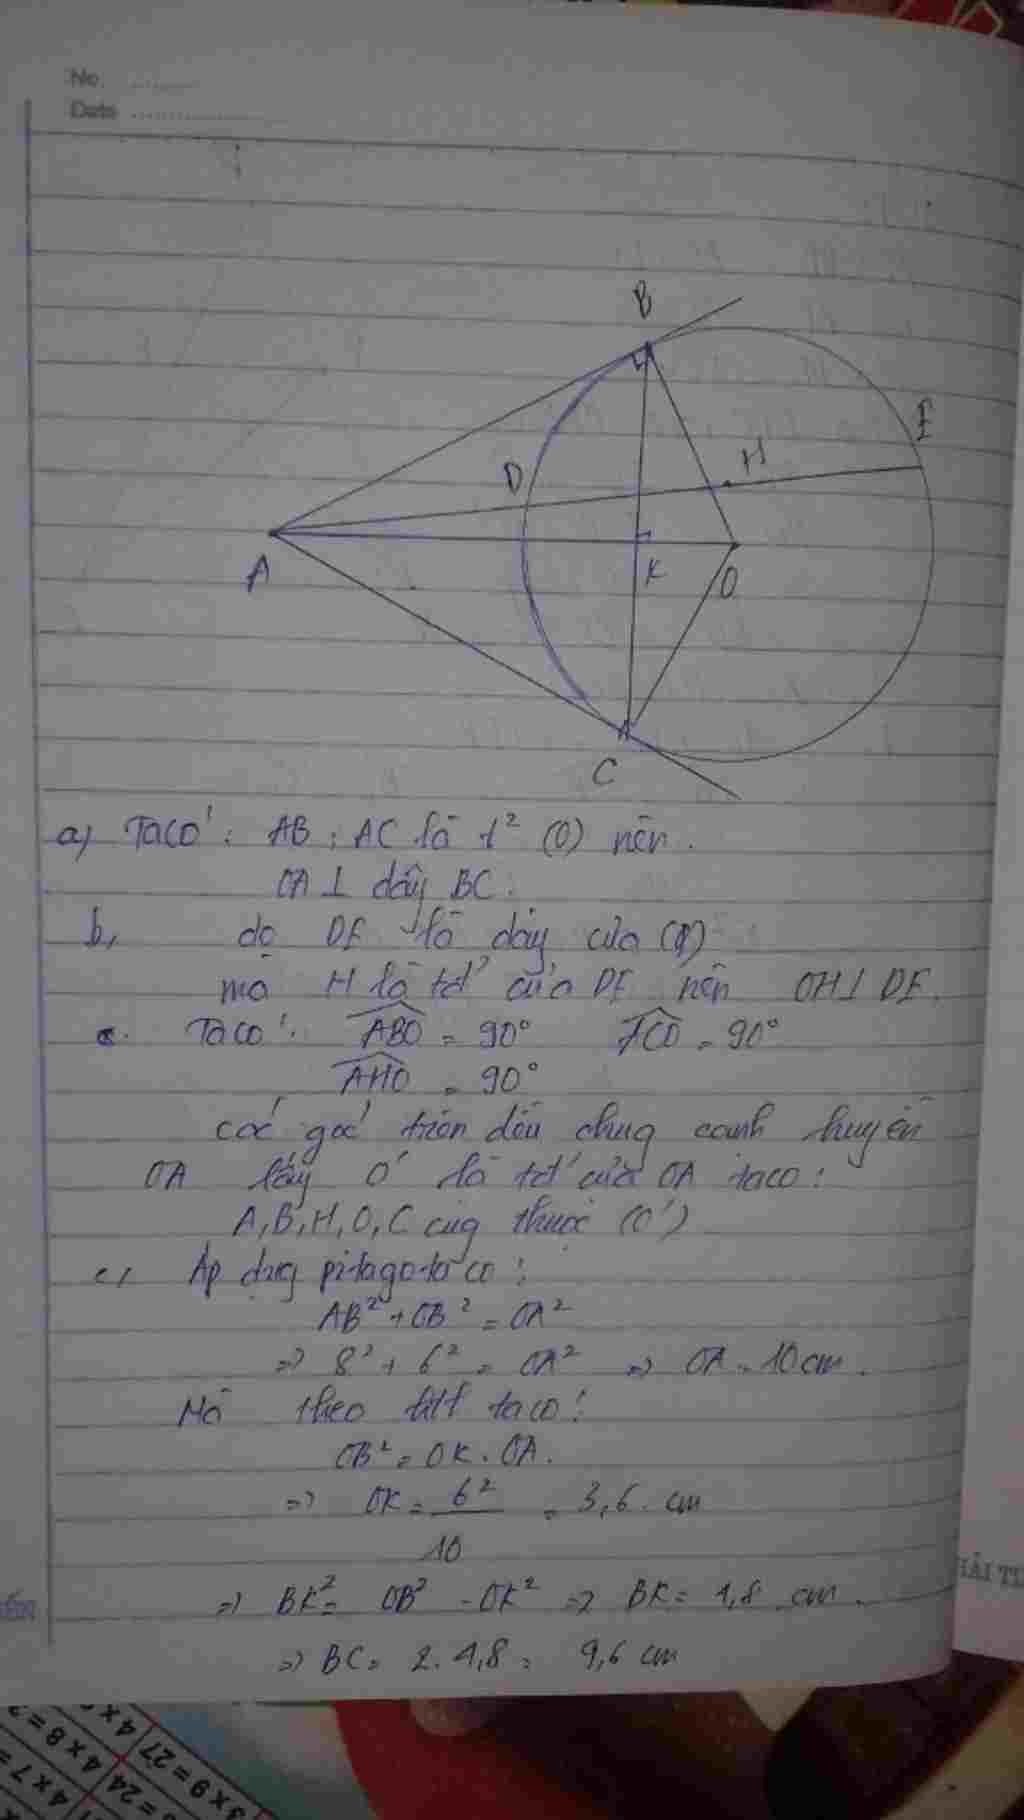 No. ........
Date ..................
B
E
H
D
A
K
O
C
a) Taco': AB; AC là t² (O) nên.
OA ⊥ dây BC.
b, do DE là dây của (O)
mà H là tđ' của DE nên OH ⊥ DE.
Taco': ABO = 90° ACO = 90°
AHO = 90°
các góc trên đều chung cạnh huyền
OA lấy O' là tđ' của OA taco:
A, B, H, O, C cùg thuộc (O')
c, Áp dụg pitago ta co:
AB² + OB² = OA²
=> 8² + 6² = OA² => OA = 10 cm.
Mà theo htlt taco:
OB² = OK . OA.
=> OK = 6² / 10 = 3,6 cm
=> BK² = OB² - OK² => BK = 4,8 cm.
=> BC = 2.4,8 = 9,6 cm
HẢI T
4 x
3 x 9 = 27
4 x 8 = 3
= 24
4 x 7 =